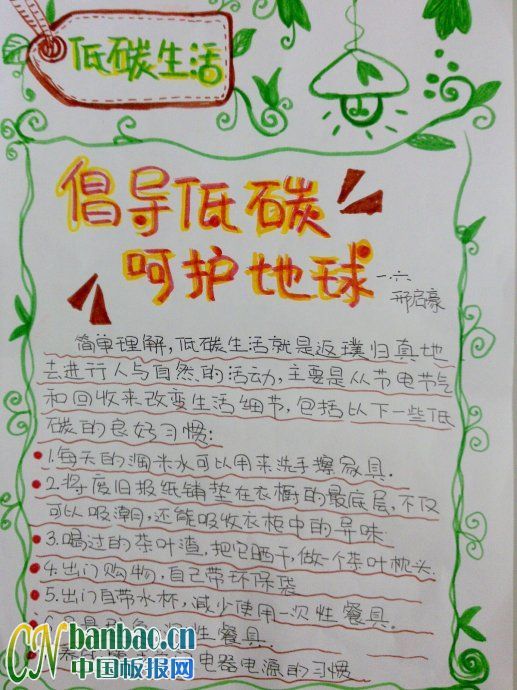 低碳生活
倡导低碳
呵护地球
一.六
邢启豪
简单理解,低碳生活就是返璞归真地
去进行人与自然的活动,主要是从节电节气
和回收来改变生活细节,包括以下一些低
碳的良好习惯:
1.每天的淘米水可以用来洗手擦家具.
2.将废旧报纸铺垫在衣橱的最底层,不仅
可以吸潮,还能吸收衣柜中的异味.
3.喝过的茶叶渣,把它晒干,做一个茶叶枕头.
4.出门购物,自己带环保袋
5.出门自带水杯,减少使用一次性餐具.
性餐具.
电器电源的习惯
CN banbao.cn
中国板报网